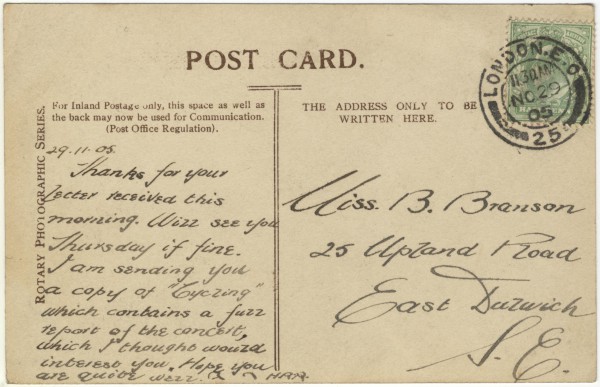 POST CARD.
For Inland Postage only, this space as well as
the back may now be used for Communication.
(Post Office Regulation).
THE ADDRESS ONLY TO BE
WRITTEN HERE.
ROTARY PHOTOGRAPHIC SERIES.
LONDON. E.C
11.30AM
NO 29
05
25
29.11.05.
Thanks for your
letter received this
morning. Will see you
Thursday if fine.
I am sending you
a copy of "Cycling"
which contains a full
report of the concert,
which I thought would
interest you. Hope you
are quite well.
Miss. B. Branson
25 Upland Road
East Dulwich
S.E.